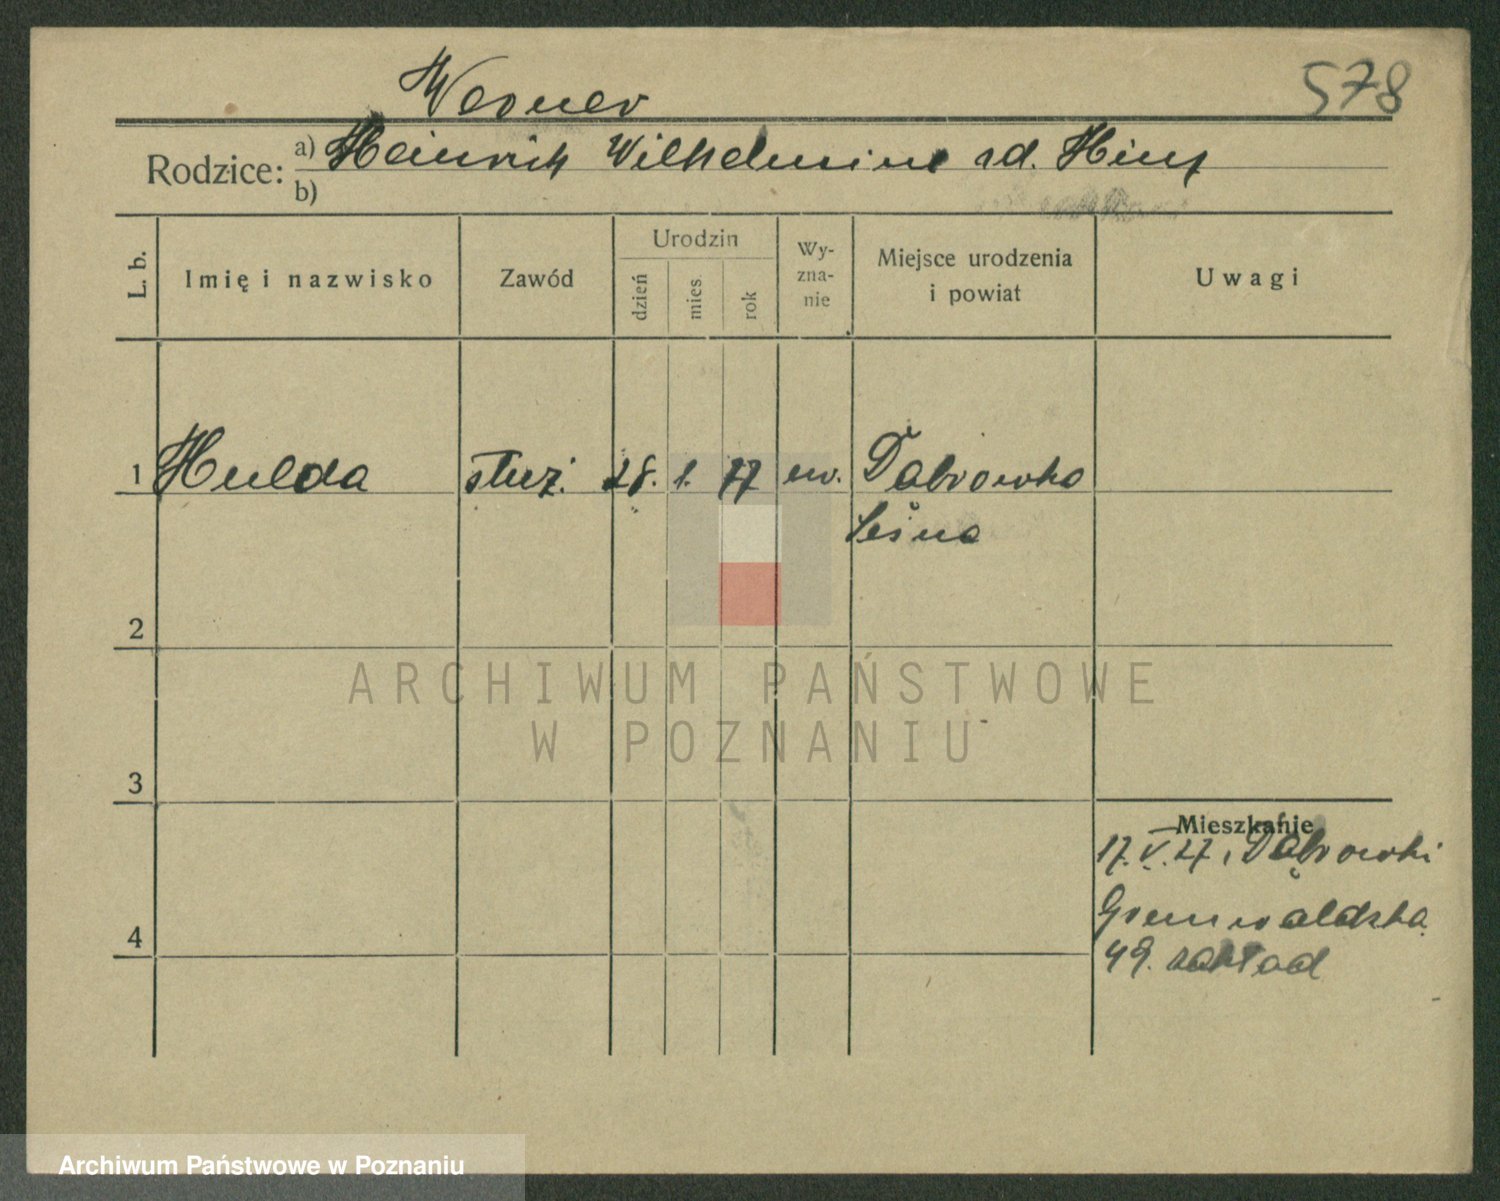 578
Werner
Rodzice: a) Heinrich Wilhelmine rd.
b)
L. b. Imię i nazwisko Zawód Urodzin dzień mies. rok Wy-zna-nie Miejsce urodzenia i powiat Uwagi
1 Hulda służ. 28. 1. 77 ew. Dąbrówka
leśna
2
ARCHIWUM PAŃSTWOWE
W POZNANIU
3
Mieszkanie
17.V.27, Dąbrowski
Grunwaldzka
49. zakład
4
Archiwum Państwowe w Poznaniu